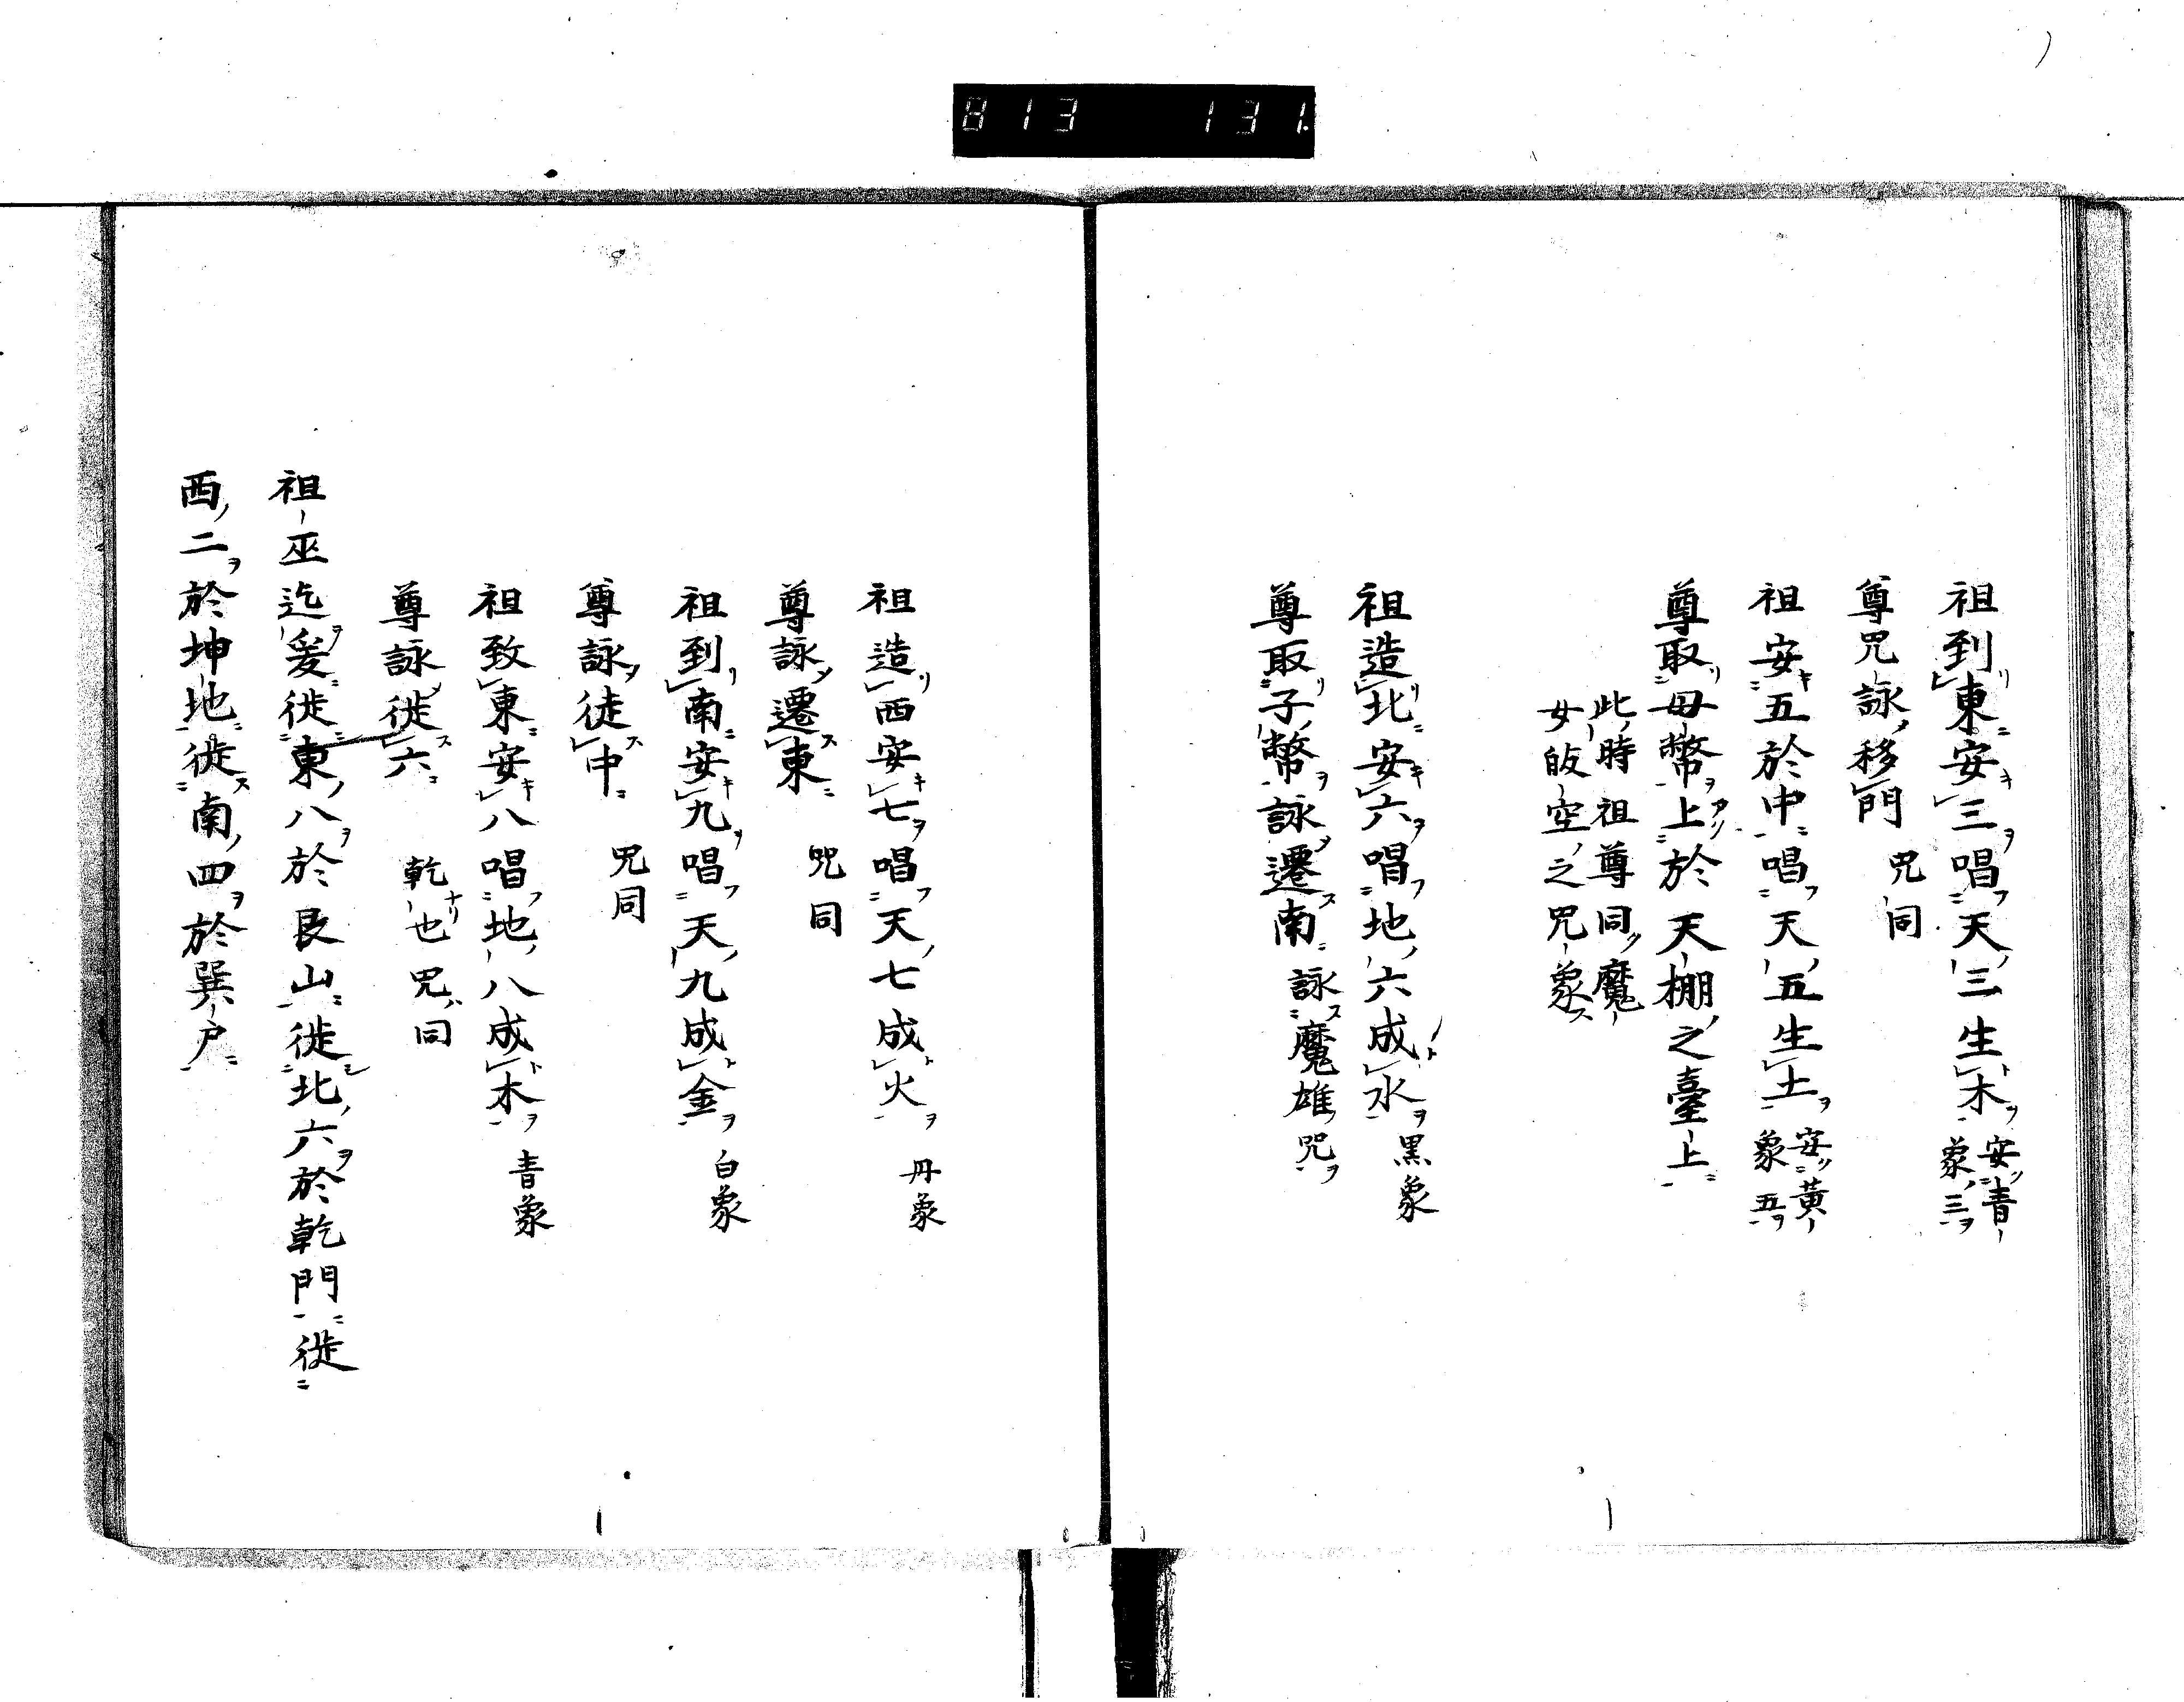 813 131.
祖到東安三唱天三生木 安青象三
尊咒詠移門 咒同
祖安五於中唱天五生土 安黄象五
尊取母幣上於天棚之臺上
此時祖尊同魔
女皈空之咒象
祖造北安六唱地六成水 黒象
尊取子幣詠遷南 詠魔雄咒
祖造西安七唱天七成火 丹象
尊詠遷東 咒同
祖到南安九唱天九成金 白象
尊詠徒中 咒同
祖致東安八唱地八成木 青象
尊詠徙六 乾也咒同
祖巫迄爰徙東八於艮山徙北六於乾門徙
西二於坤地徙南四於巽戸